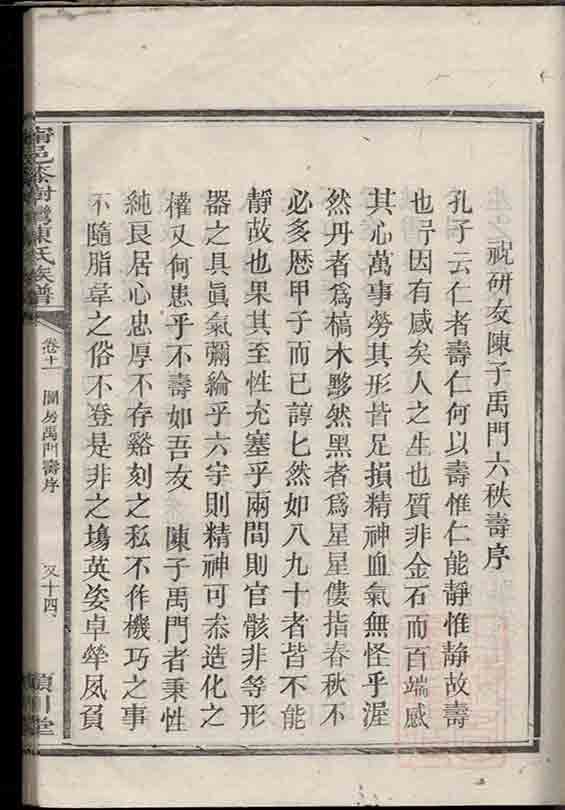 祝研友陳子禹門六秩壽序
孔子云仁者壽仁何以壽惟仁能靜惟靜故壽
也㝍因有感矣人之生也質非金石而百端感
其心萬事勞其形皆足損精神血氣無怪乎渥
然丹者爲槁木黟然黑者爲星星僂指春秋不
必多歴甲子而已諄匕然如八九十者皆不能
靜故也果其至性充塞乎兩間則官骸非等形
器之具眞氣彌綸乎六宇則精神可叅造化之
權又何患乎不壽如吾友 陳子禹門者秉性
純良居心忠厚不存谿刻之私不作機巧之事
不隨脂韋之俗不登是非之塲英姿卓犖夙負
甯邑漆樹灣陳氏族譜
卷十一 圖房禹門壽序
又十四
頴川堂